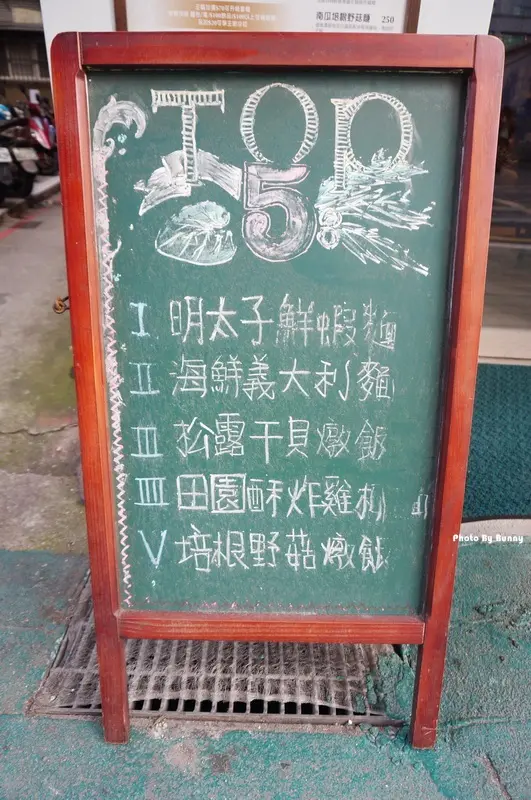 南瓜培根野菇麵 250
TOP
5
I 明太子鮮蝦麵
II 海鮮義大利麵
III 松露干貝燉飯
IIII 田園酥炸雞
V 培根野菇燉飯
Photo By Bunny